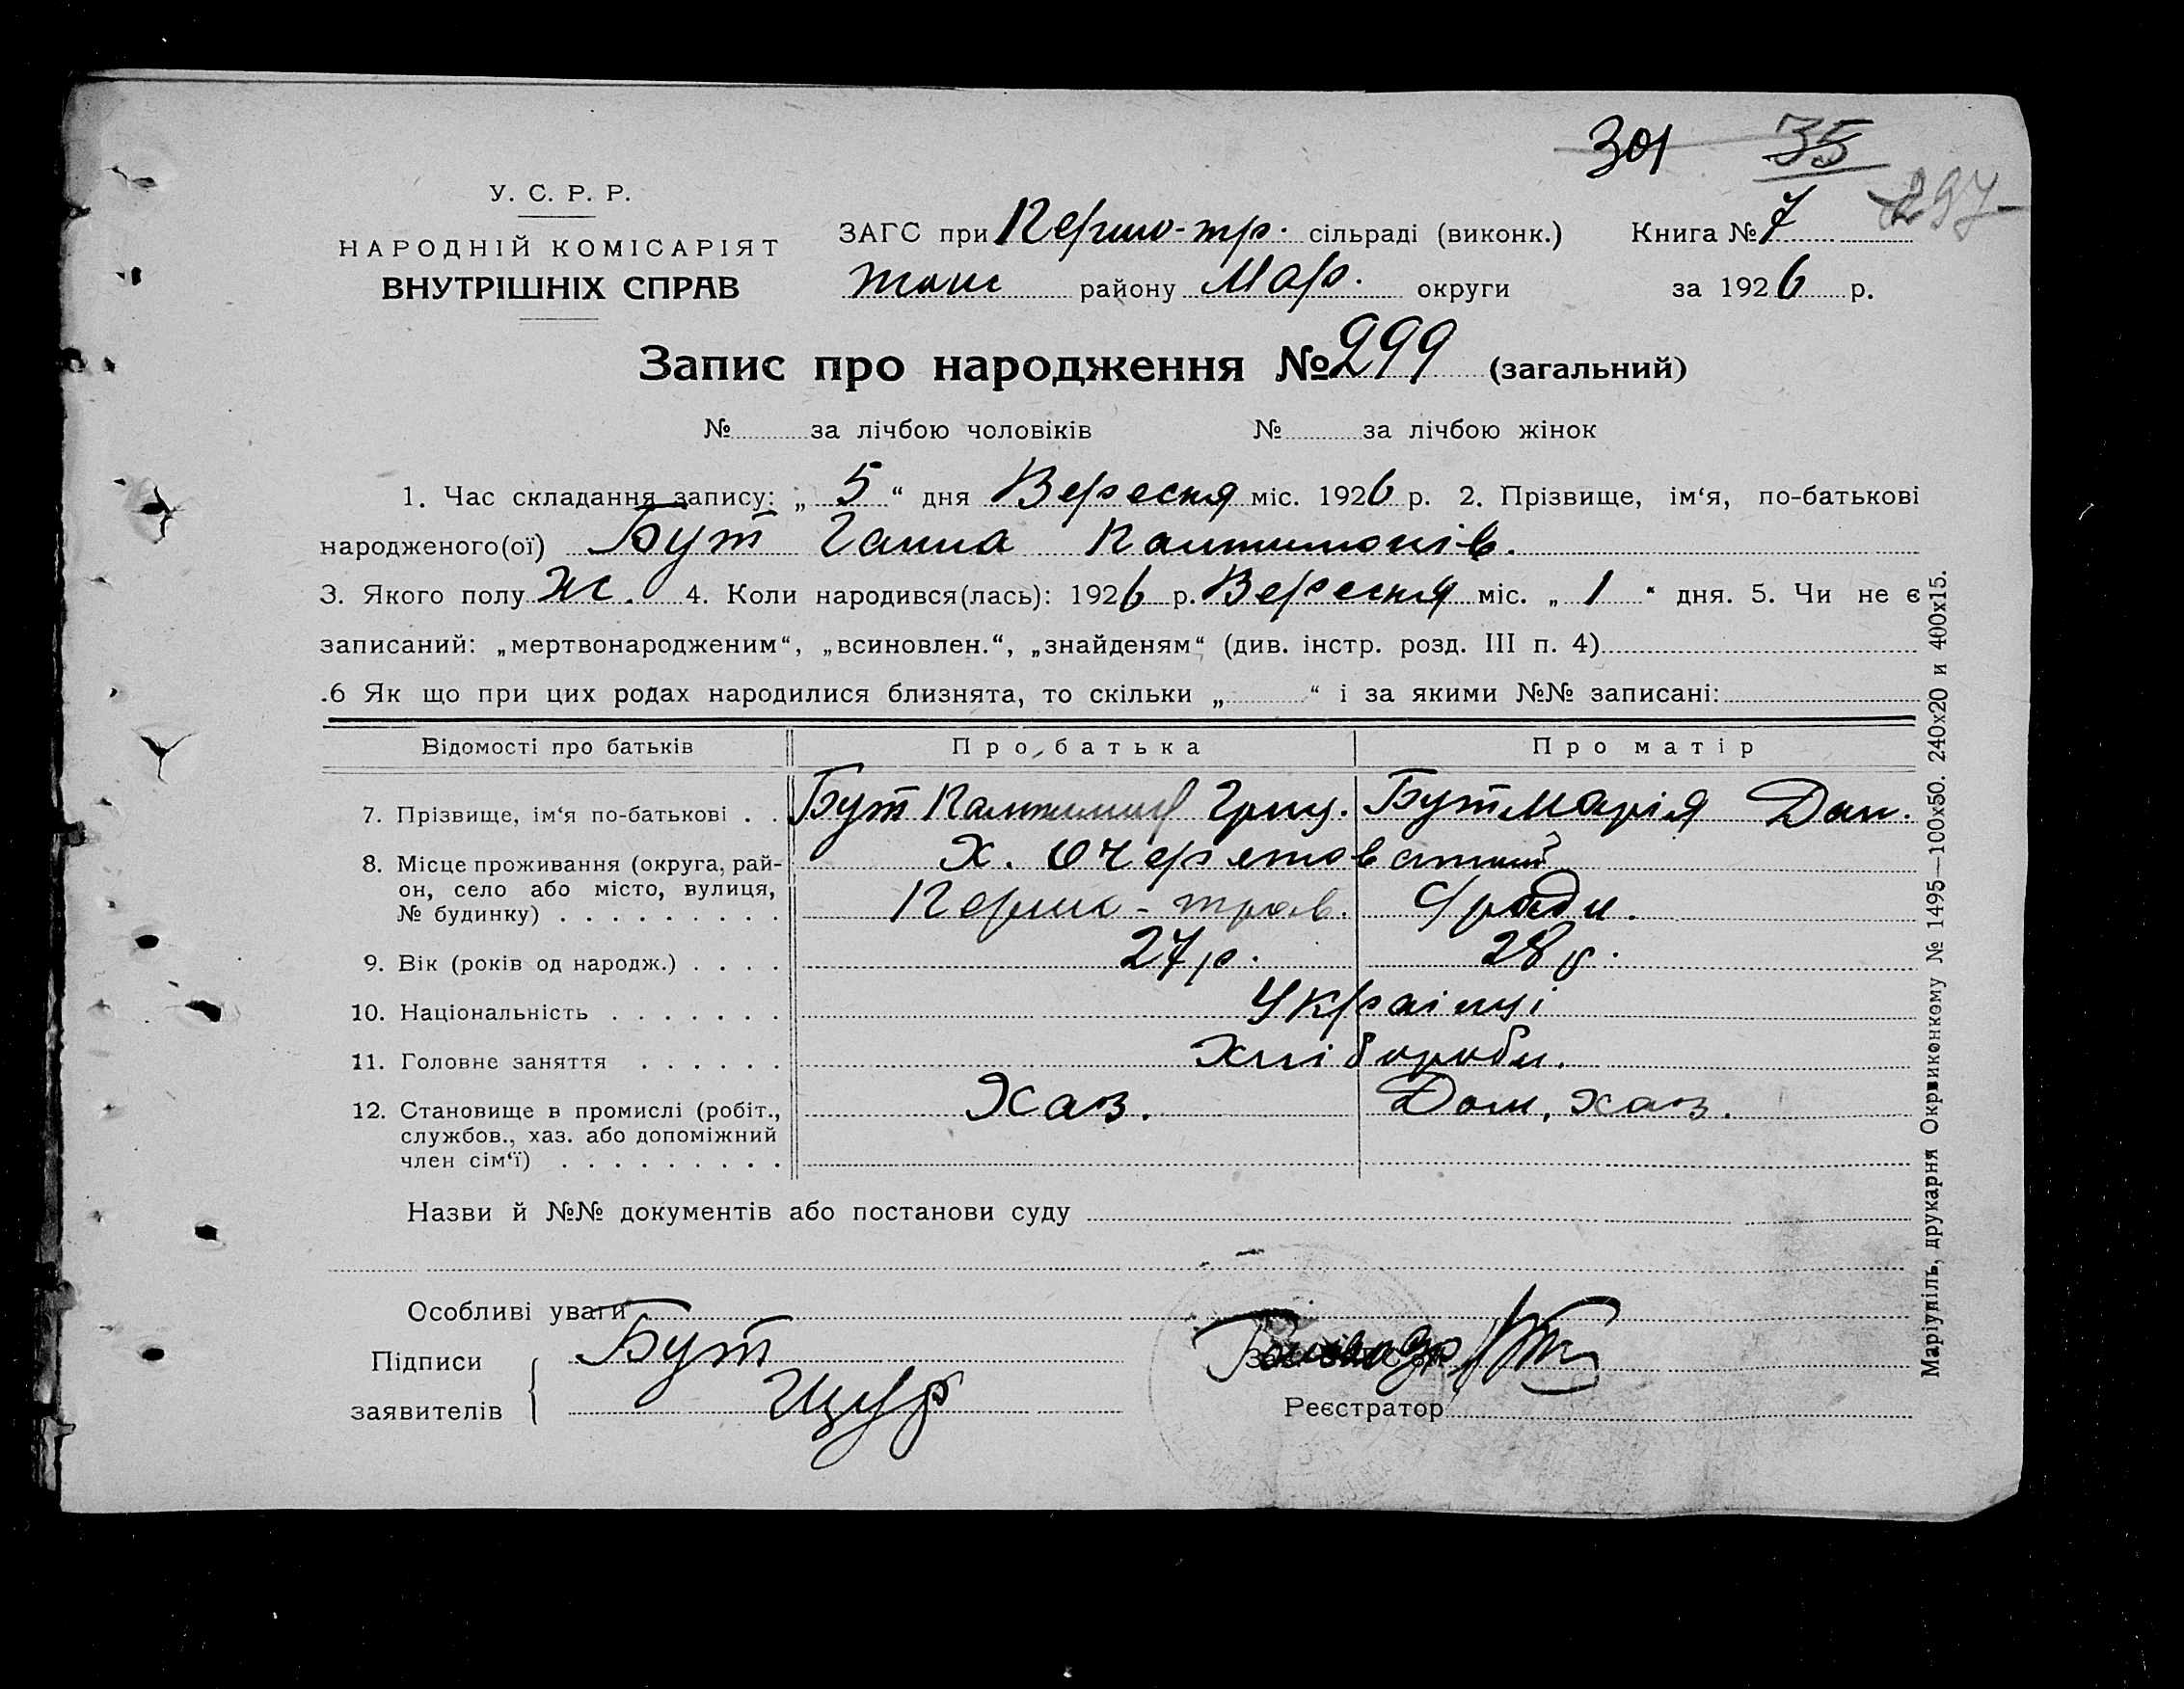 301 35
297
У. С. Р. Р.
НАРОДНІЙ КОМІСАРІЯТ
ВНУТРІШНІХ СПРАВ
ЗАГС при Першо-тр. сільраді (виконк.)
району Мар. округи
Книга № 7
за 1926 р.
Запис про народження № 299 (загальний)
№ за лічбою чоловіків № за лічбою жінок
1. Час складання запису: „ 5 “ дня Вересня міс. 1926 р. 2. Прізвище, ім‘я, по-батькові
народженого(ої) Бут Ганна Пантимонів.
3. Якого полу ж. 4. Коли народився(лась): 1926 р. Вересня міс. „ 1 “ дня. 5. Чи не є
записаний: „мертвонародженим“, „всиновлен.“, „знайденям“ (див. інстр. розд. III п. 4)
.6 Як що при цих родах народилися близнята, то скільки „ “ і за якими №№ записані:
Відомості про батьків Про батька Про матір
7. Прізвище, ім‘я по-батькові . . Бут Григ. Бут Марія Дан.
8. Місце проживання (округа, рай-
он, село або місто, вулиця,
№ будинку) . . . . . . . . .
х. Очеретоватий
Першо-трав. с/ради.
9. Вік (років од народж.) . . . . 27 р. 28 р.
10. Національність . . . . . . . Українці
11. Головне заняття . . . . . . Хлібороби.
12. Становище в промислі (робіт.,
службов., хаз. або допоміжний
член сім‘ї) . . . . . . . . .
Хаз. Дом. хаз.
Назви й №№ документів або постанови суду
Особливі уваги
Підписи
заявителів
Бут
Щур
Реєстратор
Маріупіль, друкарня Окрвиконкому № 1495—100x50. 240x20 и 400x15.